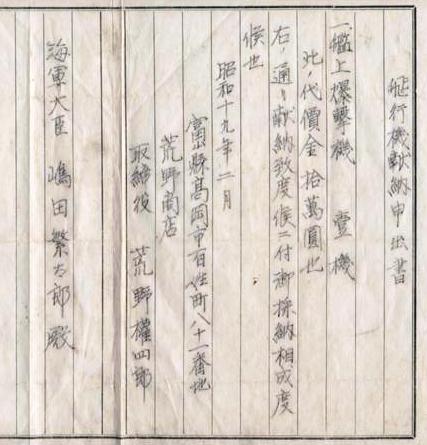 飛行機献納申出書
一艦上爆撃機　壹機
此ノ代價金拾萬圓也
右ノ通リ献納致度候ニ付御採納相成度
候也
昭和十九年二月
富山縣高岡市百姓町八十一番地
荒野商店
取締役　荒野權四郎
海軍大臣　嶋田繁太郎殿